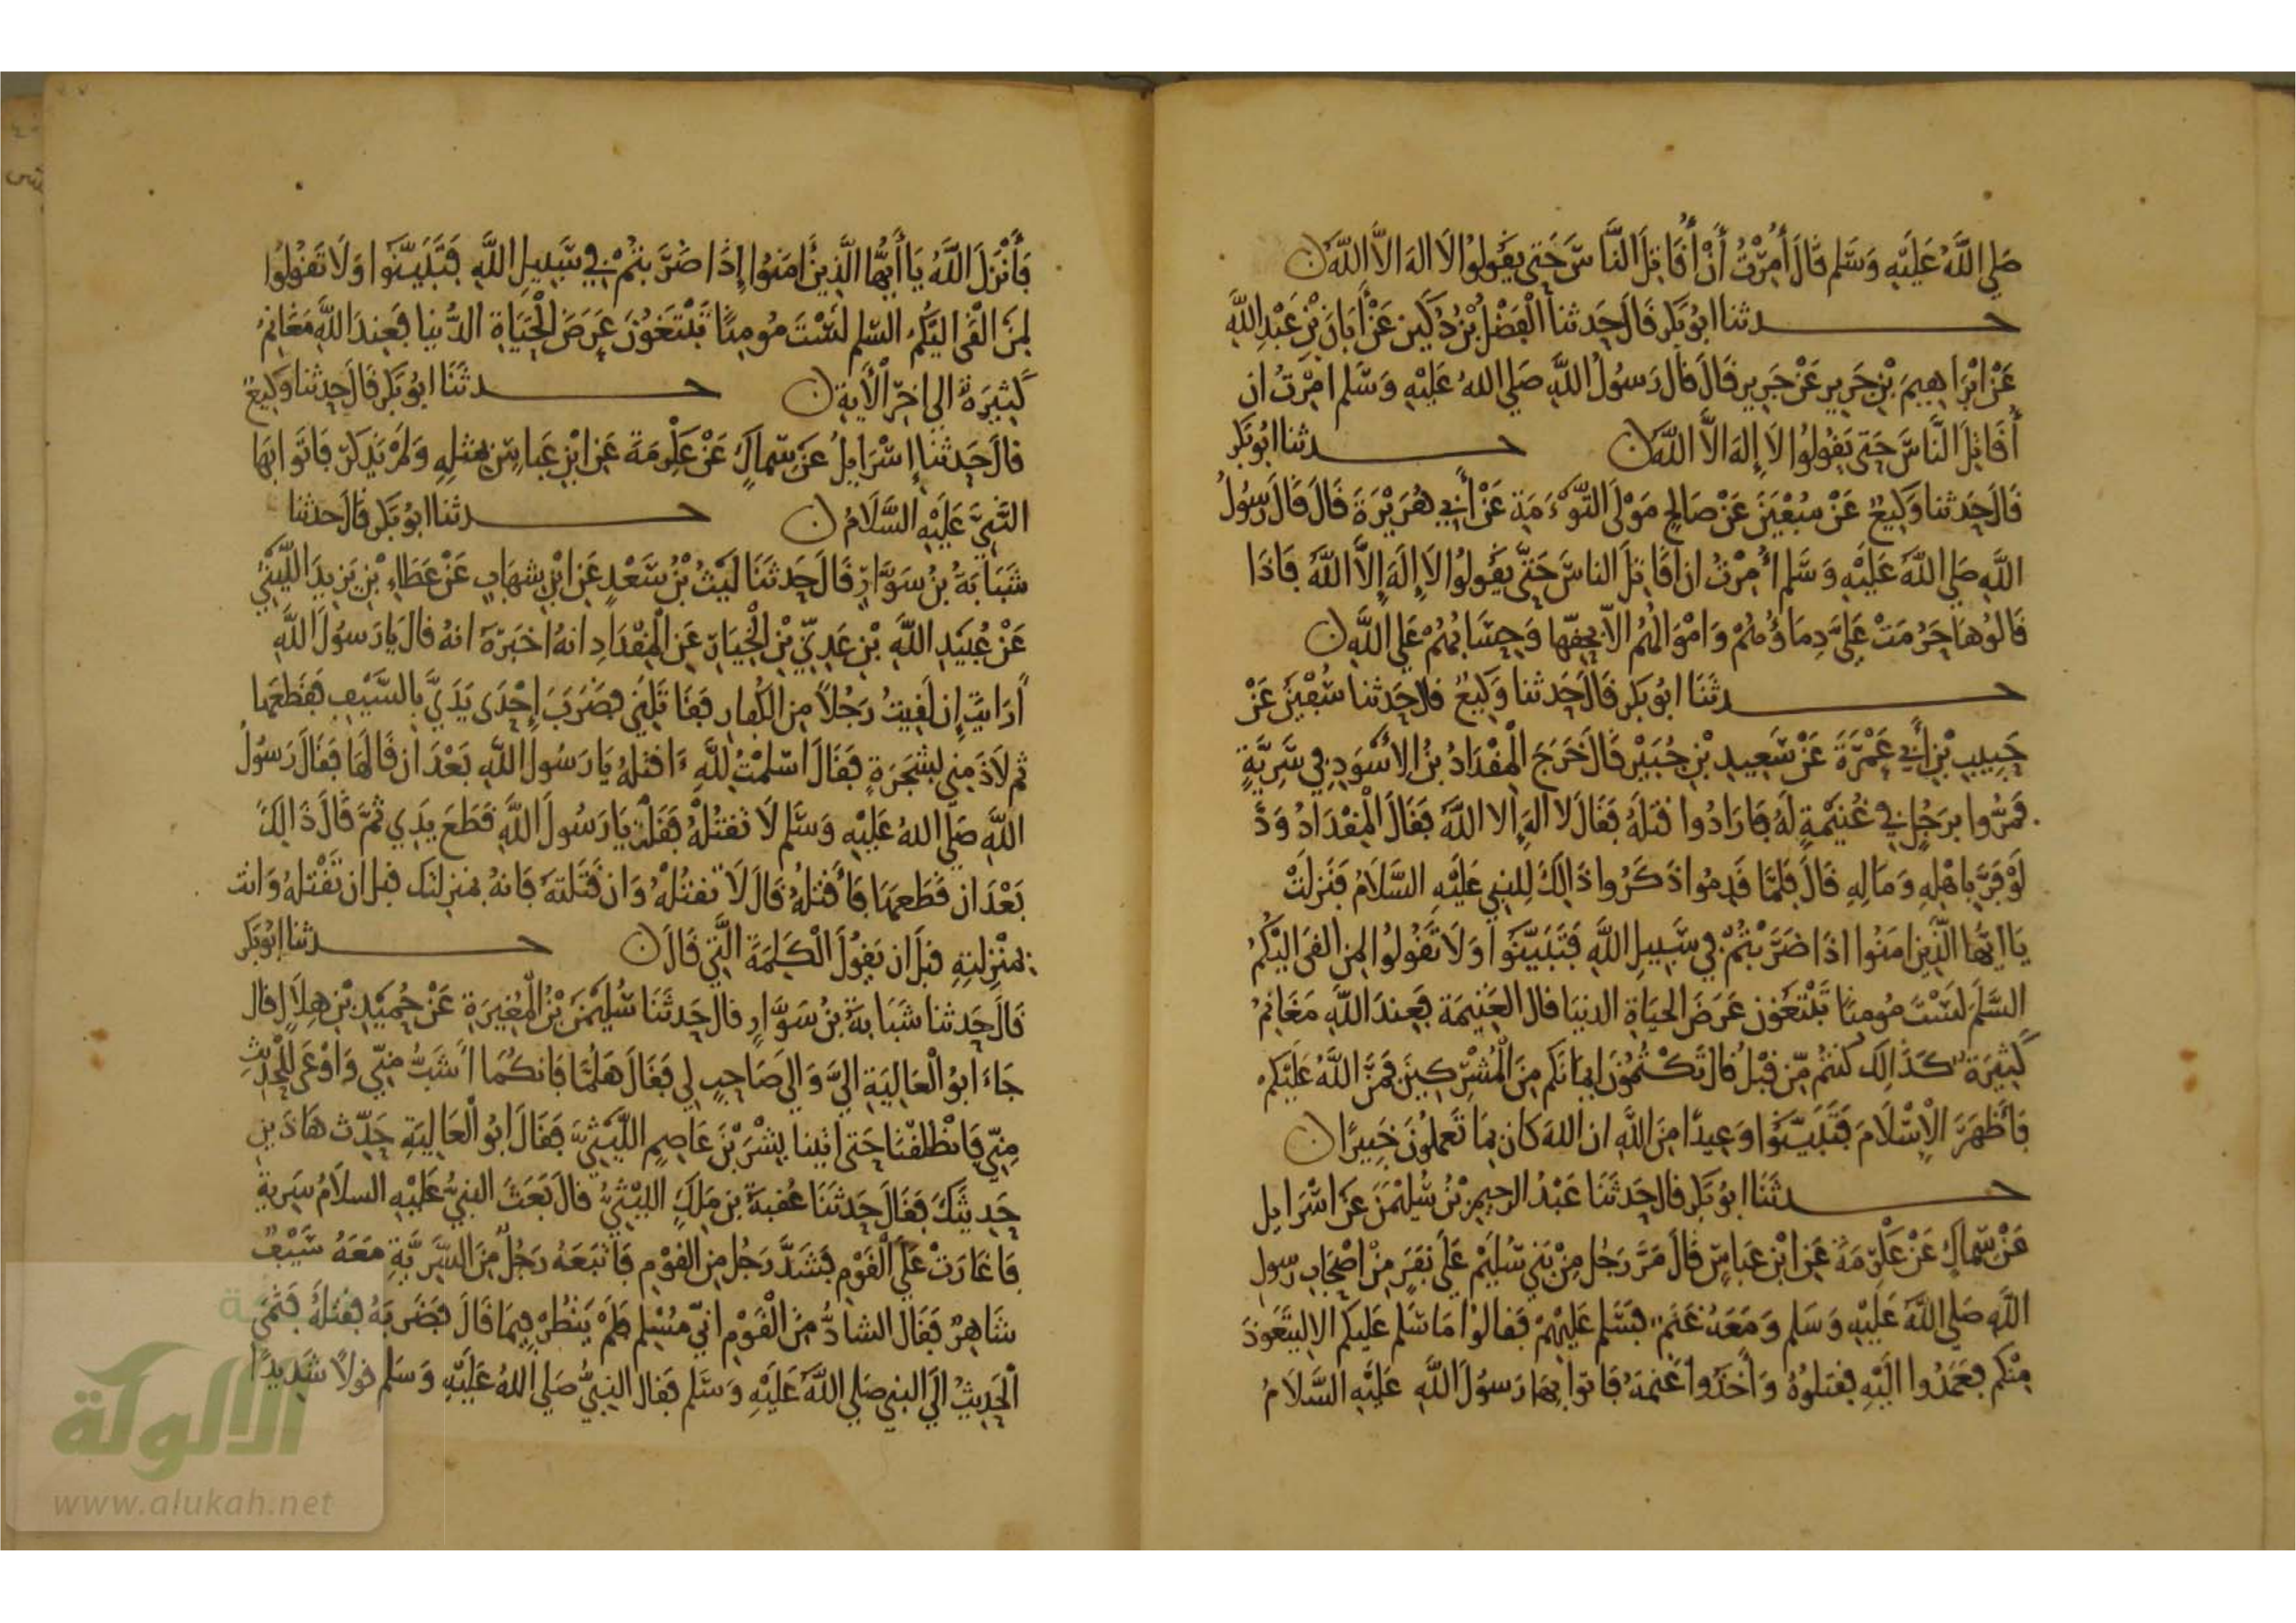 صَلى اللَّهُ عَلَيْهِ وَسَلم قَالَ أُمِرْتُ أَنْ أُقَاتِلَ النَّاسَ حَتى يَقُولُوا لَا اله الَّا اللَّه ن
حـــدثنا ابُو بَكر قَالَ حَدثنا الْفَضْلُ بْنُ دُكَين عَنْ أَبَانَ بْنِ عَبْدِ اللَّهِ
عَنْ ابْرَاهِيمَ بْنِ جَرِير عَنْ جَرِير قَالَ قَالَ رَسُولُ اللَّهِ صَلى اللهُ عَلَيْهِ وَسَلم امِرْتُ ان
أُقَاتِلَ النَّاسَ حَتى يَقُولُوا لَا إِلَهَ الَّا اللَّه ن حـــدثنا ابُو بَكر
قَالَ حَدثنا وَكِيعٌ عَنْ سُفْيَنَ عَنْ صَالح مَوْلَى التَّوْءَمَةِ عَنْ أَبِي هُرَيْرَةَ قَالَ قَالَ رَسُولُ
اللَّهِ صَلي اللَّهُ عَلَيْهِ وَسَلم أُمِرْتُ ان اقَاتِلَ الناسَ حَتَّى يَقُولُوا لَا إِلَهَ إِلَّا اللَّهُ فَاذَا
قَالُوهَا حَرُمَتْ عَلَيَّ دِمَاؤُهُمْ وَامْوَالهُمُ الَّا بِحَقِّهَا وَحِسَابُهُمْ عَلى اللَّهِ ن
حـــدثَنَا ابُو بَكر قَالَ حَدثنا وَكِيعٌ قال حَدثنا سُفْيَنُ عَنْ
حَبِيبِ بْنِ أَبِي عَمْرَةَ عَنْ سَعِيدِ بْنِ جُبَيْر قَالَ خَرَجَ الْمِقْدَادُ بْنُ الاسْوَدِ فِي سَرِيَّةٍ
فَمَرُّوا بِرَجُلٍ فِي غُنَيْمَةٍ لَهُ فَارَادُوا قَتْلَهُ فَقَالَ لا الهَ الا اللَّه فَقَالَ الْمِقْدَادُ وَدَّ
لَوْ فَرَّ بِاهْلِهِ وَمَالِهِ قَالَ فَلَمَّا قَدِمُوا ذَكَرُوا ذَالِكَ لِلنبي عَلَيْهِ السَّلَامُ فَنَزلَتْ
يَا ايُّهَا الَّذِينَ امَنُوا اذَا ضَرَبْتُمْ فِي سَبِيلِ اللَّهِ فَتَبَيَّنُوا وَلَا تَقُولُوا لمِن القى الَيْكُمُ
السَّلَمَ لَسْتَ مُومِنًا تَبْتَغُونَ عَرَضَ الحيَاةِ الدنيَا قال الغَنِيمَة فَعِندَ اللَّهِ مَغَانِمُ
كَثِيرَةٌ كَذَالِكَ كُنتُم مِّن قَبْلُ قال تَكْتُمُونَ ايمَانَكم مِنَ الْمُشْرِكِينَ فَمَنَّ اللَّهُ عَلَيْكم
فَأَظْهَرَ الْإِسْلَامَ فَتَبَيَّنُوا وَعِيدًا مِنَ اللَّهِ ان اللهَ كَانَ بِمَا تَعملُونَ خَبِيرًا ن
حـــدثَنَا ابُو بَكر قال حَدثَنَا عَبْدُ الرحِيمِ بْنُ سُلَيْمَنَ عَنَ اسْرَايل
عَنْ سِّمَاكٍ عَنْ عَلْرِمَة عَنِ ابْنِ عَباسٍ قَالَ مَرَّ رَجُل مِنْ بَنِي سُلَيْم عَلَى نَفَرٍ مِنْ اصْحَابِ رسول
اللَّهِ صَلي اللَّهُ عَلَيْهِ وَسَلم وَمَعَهُ غَنَم فَسَلم عَلَيْهِمْ فَقالوا مَا سَلم عَلَيكم الا ليتَعَوذَ
مِنْكم فعَمَدُوا الَيْهِ فقتلوهُ وَأَخَذُوا غَنَمهُ فَاتوا بِهَا رَسُولَ اللَّهِ عَلَيْهِ السَّلَامُ
فَأَنْزَلَ اللَّهُ يَا أَيُّهَا الَّذِينَ امَنُوا إِذَا ضَرَبتُمْ فِي سَبِيلِ اللَّهِ فَتَبَيَّنُوا وَلَا تَقُولُوا
لِمَنَ الْقَى الَيْكُمُ السّلم لَسْتَ مُومِنًا تَبْتَغُونَ عَرَضَ الْحَيَاةِ الدُّنيا فَعِندَ اللَّهِ مَغَانِمُ
كَثِيَرَةٌ الى اخِرِ الْأَيَةِ ن حـــدثَنَا ابُو بَكر قَالَ حَدثنا وَكِيعٌ
قالَ حَدثنَا إِسْرَايلُ عَنْ سِّمَاكٍ عَنْ عَلْرِمَةَ عَنِ ابْنِ عَبَاسٍ بِمثلِهِ وَلَمْ يَذكر فَاتَوا بِهَا
النَّبِيَّ عَلَيْهِ السَّلَامُ ن حـــدثنا ابُو بَكر قالَ حدثنا
شَبَابَةُ بْنُ سَوَّارٍ قَالَ حَدثَنَا لَيْثُ بْنُ سَعْدٍ عَنِ ابْنِ شِهَابٍ عَنْ عَطَاءِ بْنِ يَزِيدَ اللَّيْثِيِّ
عَنْ عُبَيْدِ اللَّهِ بْنِ عَدِيِّ بْنِ الْخِيَارِ عَنِ الْمِقْدَادِ انهُ اخبَرَهُ انهُ قالَ يَا رَسُولَ اللَّهِ
أَرَايتَ إِن لَقِيتُ رَجُلًا مِن الكُفارِ فَقَاتَلِنِي فَضَرَبَ إِحْدَى يَدَيَّ بِالسَّيْفِ فَقَطَعَهَا
ثم لَاذَ مِنِي بشجَرَةٍ فَقَالَ اسْلمْتُ لِلَّهِ ءَاقتلهُ يَا رَسُولَ اللَّهِ بَعْدَ ان قَالهَا فَقَالَ رَسُولُ
اللَّهِ صَلي اللهُ عَلَيْهِ وَسَلم لَا تَقتُلْهُ فَقُلْتُ يَا رَسُولَ اللَّهِ قَطَعَ يَدِي ثمَّ قَالَ ذَالِكَ
بَعْدَ ان قَطَعهَا فَأَقْتلُهُ قَالَ لَا تقتُلْهُ وَان قَتَلتهُ فَانهُ بمنزلتك قبل ان تَقْتلهُ وَانت
بمنْزِلتِهِ قبل ان يَقُولَ الْكَلِمَةَ الَّتِي قَالَ ن حـــدثنا ابُو بَكر
قَالَ حَدثنا شَبَابَةُ بْنُ سَوَّارٍ قال حَدثَنَا سُلَيْمَنُ بْنُ الْمُغِيرَةِ عَنْ حُمَيْدِ بْنِ هِلَالٍ قال
جَاءَ ابُو الْعَالِيَةِ اليَّ وَالى صَاحِبٍ لي فَقَالَ هَلُمَّا فَانكُمَا أَشَبُّ مِنّي وَاوْعَى لِلْحَدِيثِ
مِنّي فَانْطَلَقْنَا حَتى اتَينا بِشْرَ بْنَ عَاصِمٍ اللَّيْثِيَّ فَقَالَ ابُو الْعَالِيَةِ حَدِّث هَاذَينِ
حَدِيثَكَ فَقَالَ حَدثَنَا عُقْبَةُ بْنُ مَلِكٍ الليْثِيُّ قالَ بَعَثَ النبيُّ عَلَيْهِ السلَامُ سَرِيةً
فَاغَارَتْ عَلَى الْقَوْمِ فَشَذَّ رَجُل مِن القَوْمِ فَاتبَعَهُ رَجُلٌ مِنَ السَّرِيَّةِ مَعَهُ سَيْفٌ
شَاهِرٌ فَقَالَ الشاذُّ مِنَ الْقَوْم انِّي مُسْلِم فَلَمْ يَنْظُرْ فِيمَا قَالَ فَضَرَبَهُ فَقَتلَهُ فَنَمَى
الْحَدِيثُ الَى النبِي صَلي اللَّهُ عَلَيْهِ وَسَلم فَقال النبِيُّ صَلي اللهُ عَلَيْهِ وَسَلم قولًا شَدِيدًا
الألوكة
www.alukah.net